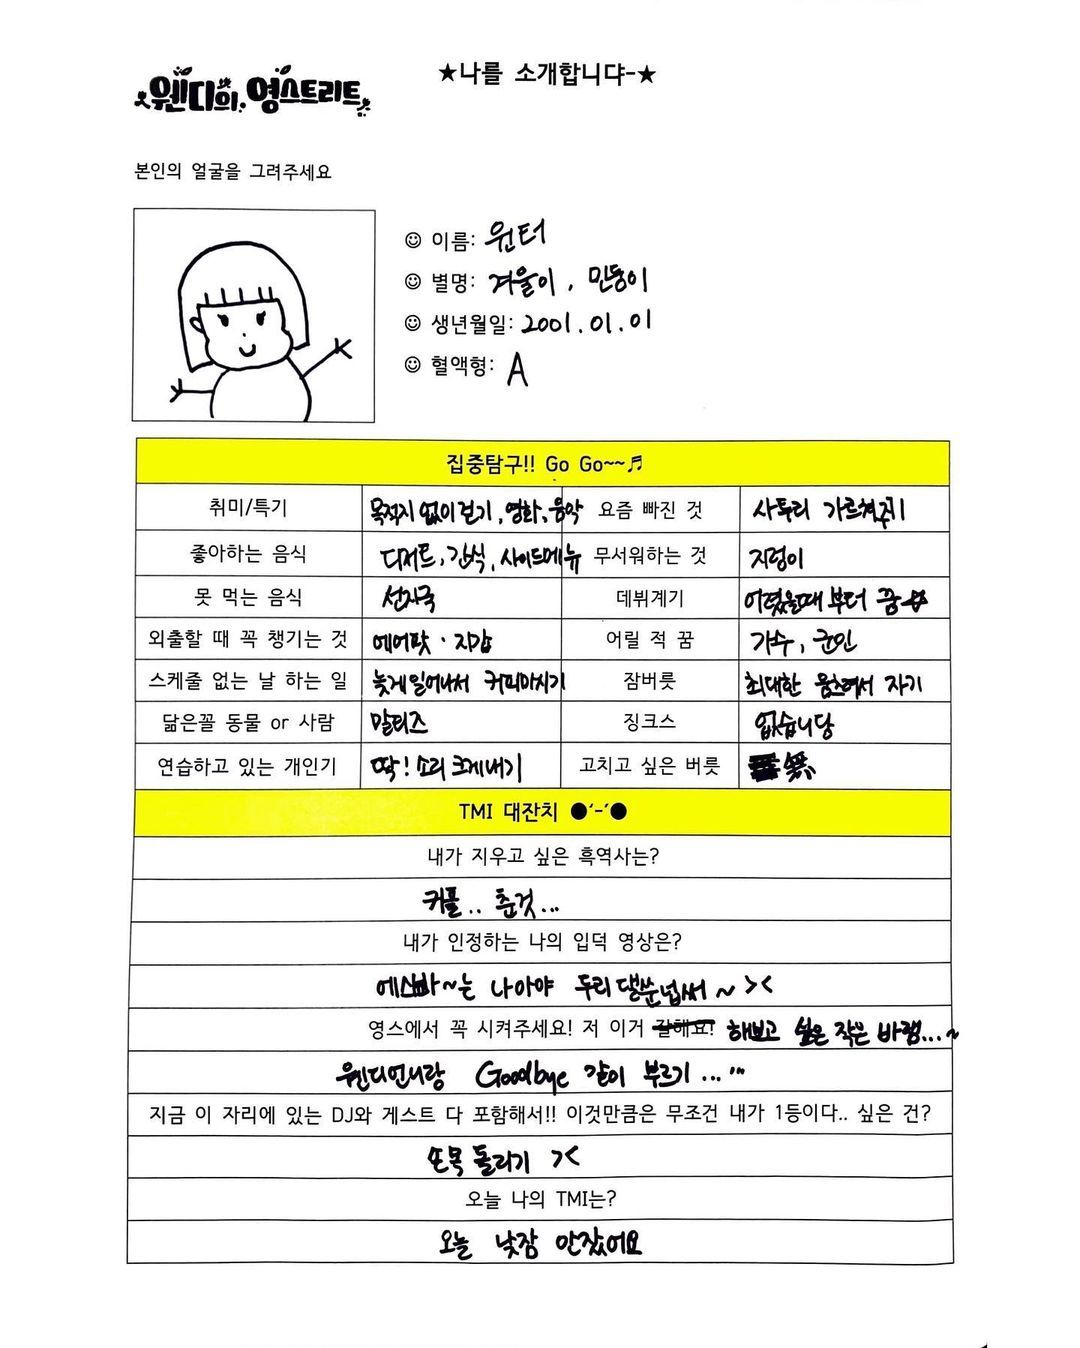 웬디의 영스트리트
★나를 소개합니댜-★
본인의 얼굴을 그려주세요
☺ 이름: 윈터
☺ 별명: 겨울이, 민둥이
☺ 생년월일: 2001.01.01
☺ 혈액형: A
집중탐구!! Go Go~~♬
취미/특기 목적지 없이 걷기, 영화, 음악 요즘 빠진 것 사투리 가르쳐주기
좋아하는 음식 디저트, 간식, 사이드메뉴 무서워하는 것 지렁이
못 먹는 음식 선지국 데뷔계기 어렸을때 부터 꿈☆
외출할 때 꼭 챙기는 것 에어팟 · 지갑 어릴 적 꿈 가수, 군인
스케줄 없는 날 하는 일 늦게 일어나서 커피마시기 잠버릇 최대한 움츠려서 자기
닮은꼴 동물 or 사람 말티즈 징크스 없습니당
연습하고 있는 개인기 딱! 소리 크게내기 고치고 싶은 버릇
TMI 대잔치 ●'-'●
내가 지우고 싶은 흑역사는?
커플.. 춘것...
내가 인정하는 나의 입덕 영상은?
에스빠~는 나아야 두리 댈 쑨 넙써 ~ ><
영스에서 꼭 시켜주세요! 저 이거 잘해요! 해보고 싶은 작은 바램...~
웬디언니랑 Goodbye 같이 부르기 ... ...
지금 이 자리에 있는 DJ와 게스트 다 포함해서!! 이것만큼은 무조건 내가 1등이다.. 싶은 건?
손목 돌리기 ><
오늘 나의 TMI는?
오늘 낮잠 안잤어요